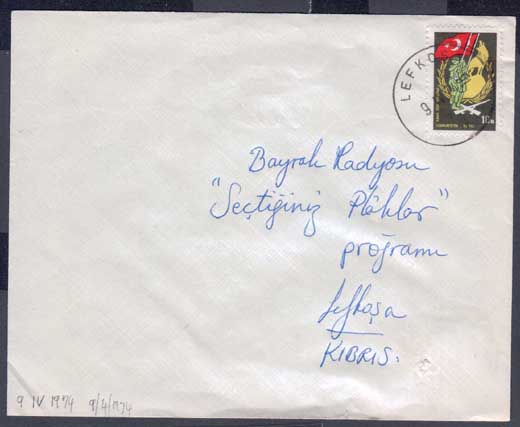 LEFKO
9
10 M
Bayrak Radyosu
"Seçtiğiniz Plâklar"
proğramı
Lefkoşa
KIBRIS.
9 IV 1974 9/4/1974